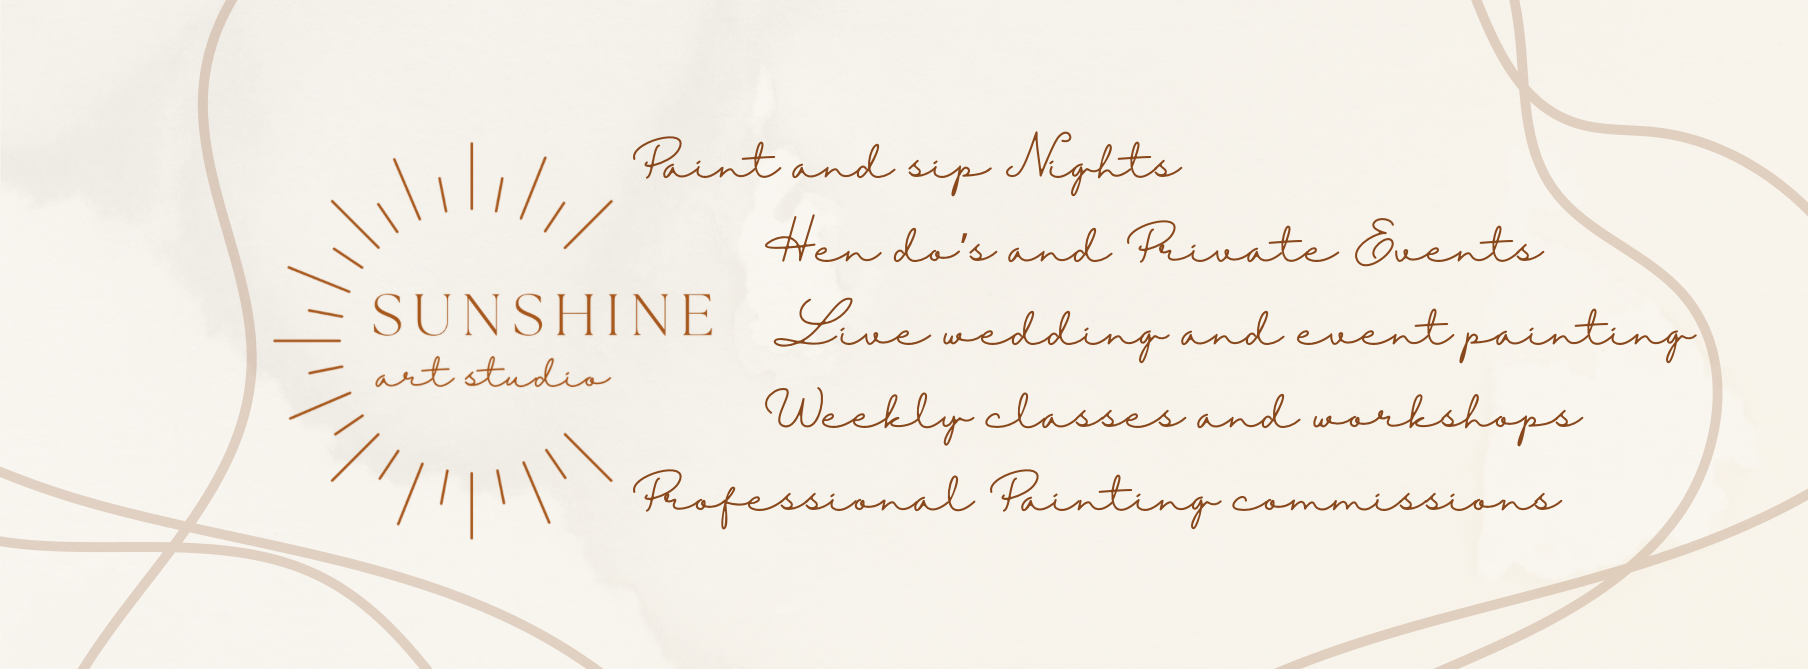 Paint and sip Nights
Hen do's and Private Events
SUNSHINE
art studio
Live wedding and event painting
Weekly classes and workshops
Professional Painting commissions